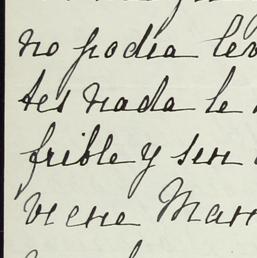 no podia lev
tes nada le
frible y sin
viene Man